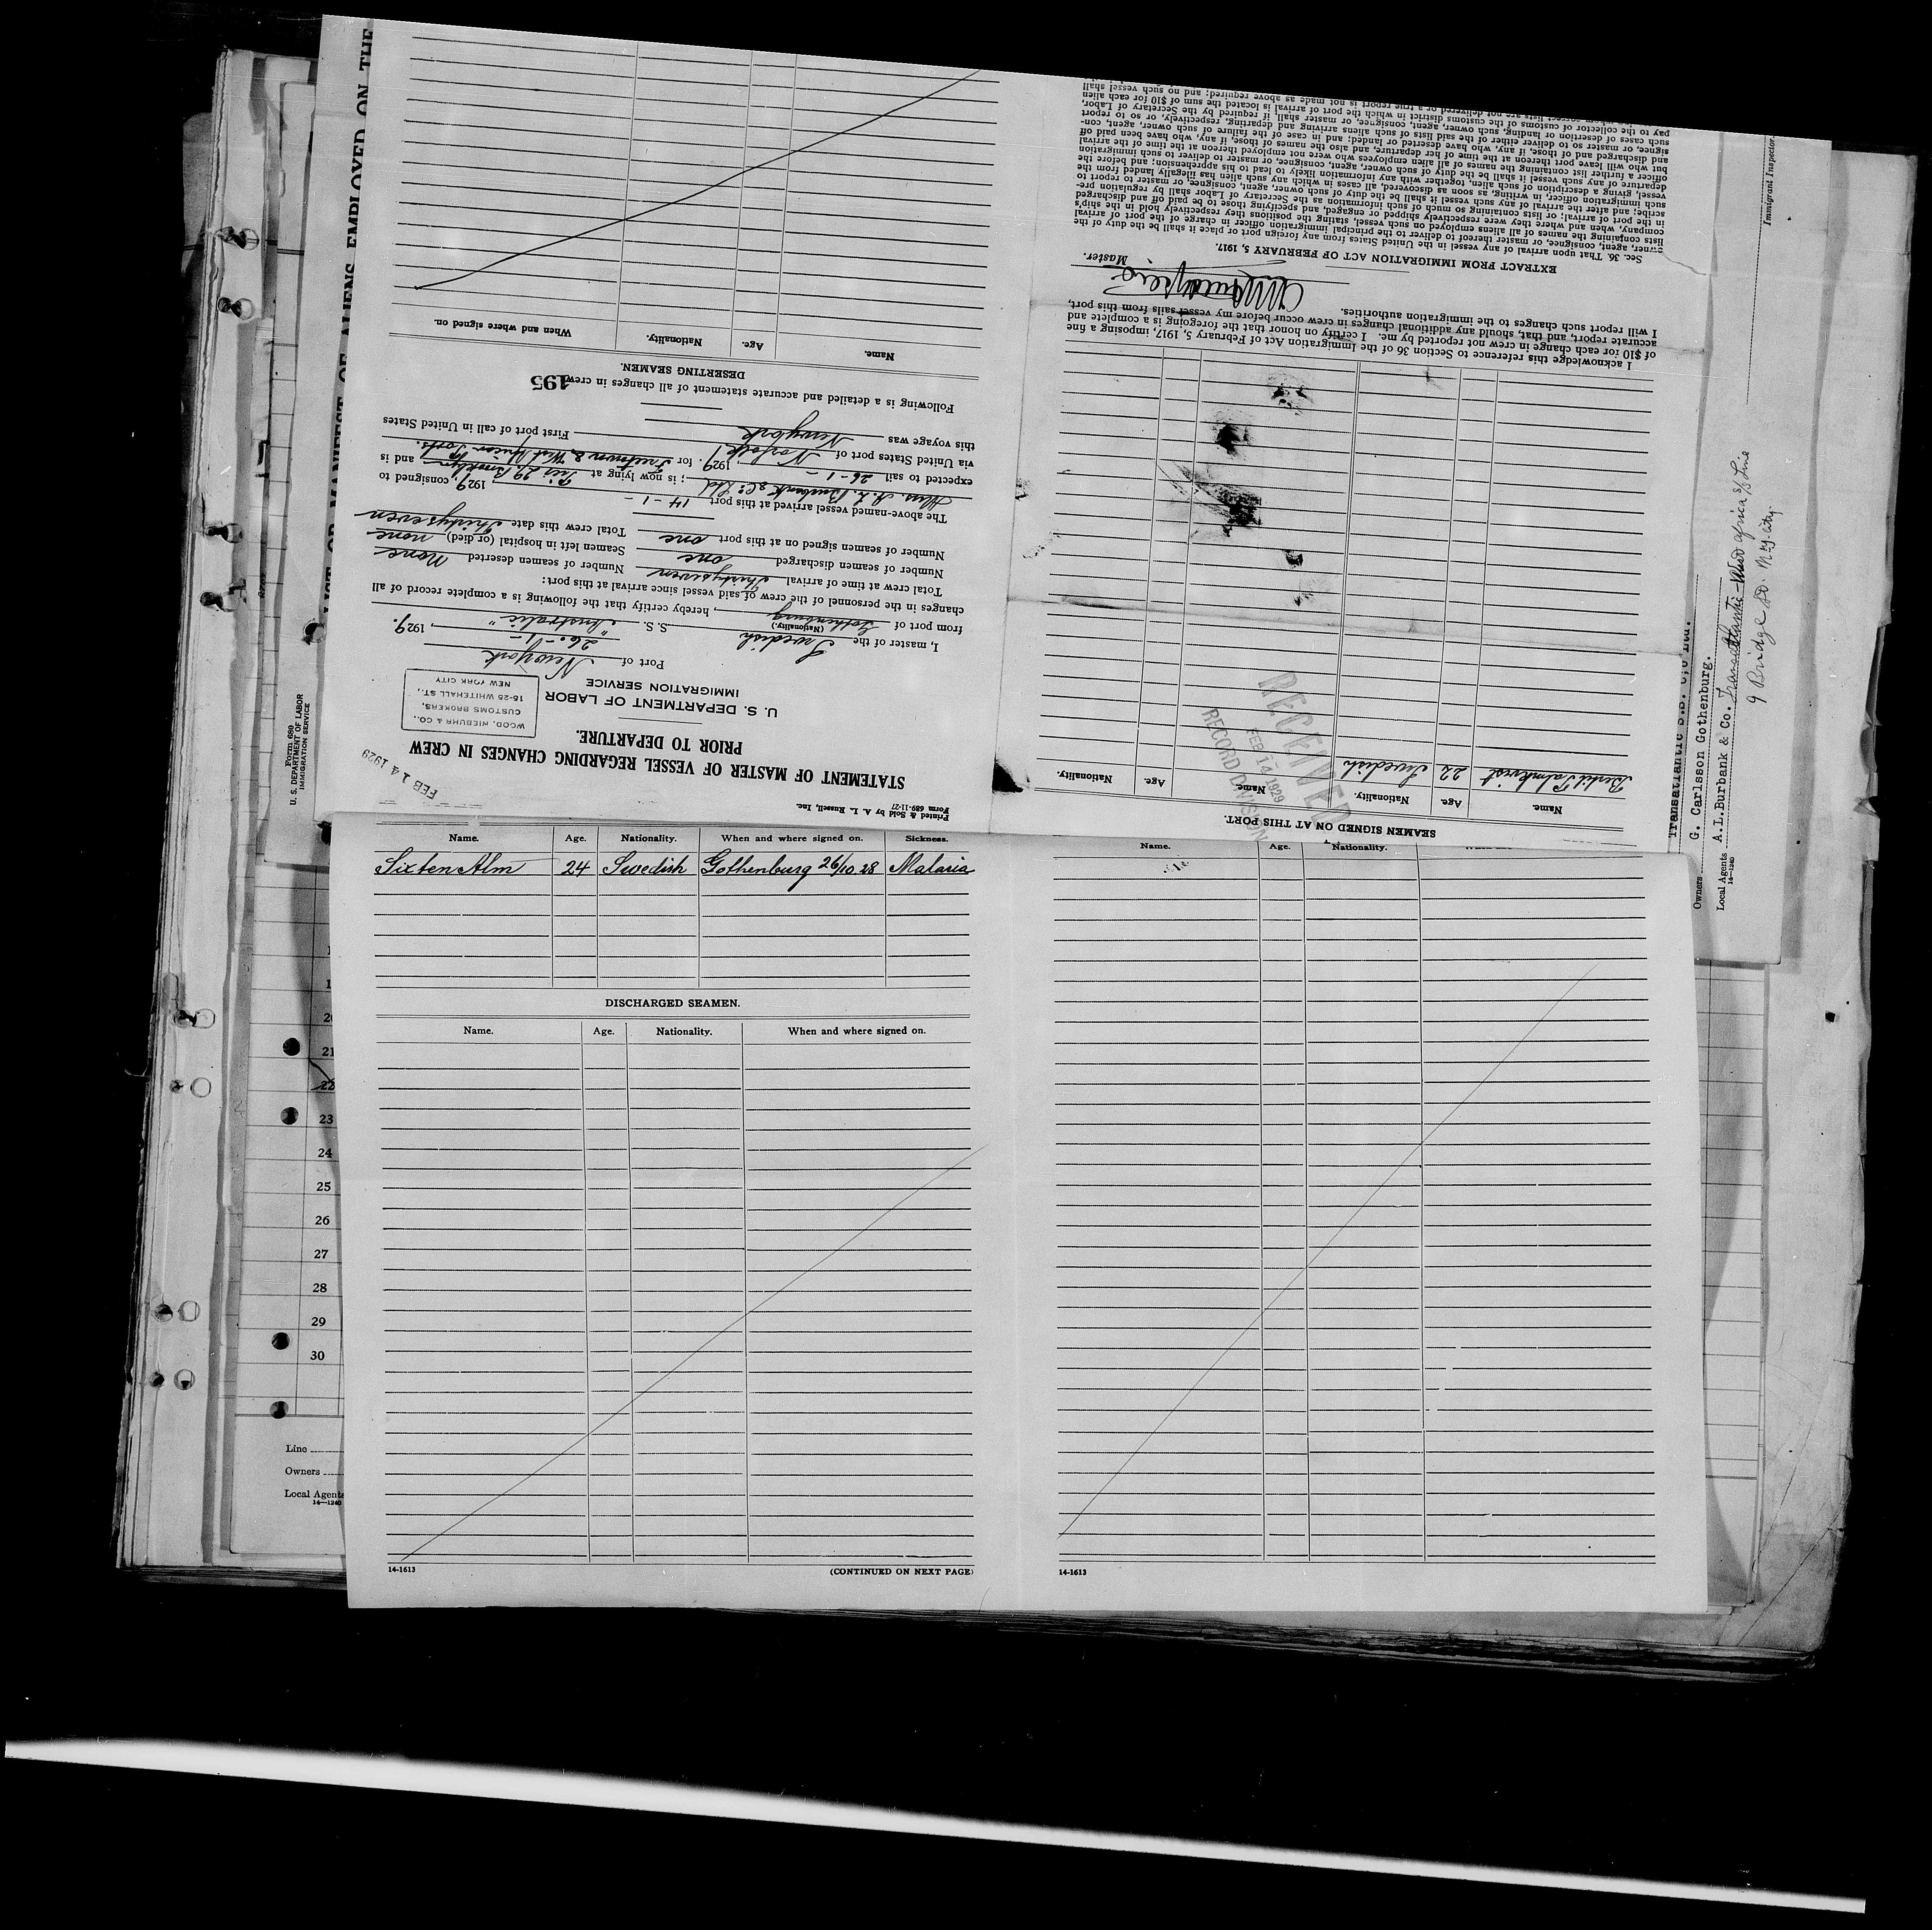 LIST OR MANIFEST OF ALIENS EMPLOYED ON THE
Form 680
U. S. DEPARTMENT OF LABOR
IMMIGRATION SERVICE
Printed & Sold by A. L. Russell, Inc.
Form 689-11-27
FEB 14 1929
STATEMENT OF MASTER OF VESSEL REGARDING CHANGES IN CREW
PRIOR TO DEPARTURE.
U. S. DEPARTMENT OF LABOR
IMMIGRATION SERVICE
WOOD, NIEBUHR & CO.,
CUSTOMS BROKERS,
15-25 WHITEHALL ST.,
NEW YORK CITY
Port of New York
26 - 1 - , 1929.
I, master of the Swedish S. S. "Australic"
(Nationality.)
from port of Gothenburg, hereby certify that the following is a complete record of all
changes in the personnel of the crew of said vessel since arrival at this port:
Total crew at time of arrival Thirtyseven Number of seamen deserted None
Number of seamen discharged one Seamen left in hospital (or died) none
Number of seamen signed on at this port one Total crew this date Thirtyseven
The above-named vessel arrived at this port 14 - 1 - 1929, consigned to
Mess. A. L. Burbank & Co. Ltd; is now lying at Pier 29 Brooklyn and is
expected to sail 26 - 1 - 1929. for Freetown & West African Ports.
via United States port of Norfolk First port of call in United States
this voyage was New York
Following is a detailed and accurate statement of all changes in crew
195
DESERTING SEAMEN.
Name. Age. Nationality. When and where signed on.
SEAMEN SIGNED ON AT THIS PORT.
Name. Age. Nationality. Name. Age. Nationality.
Bertil Palmkvist 22 Swedish
RECEIVED
FEB 14 1929
RECORD DIVISION
I acknowledge this reference to Section 36 of the Immigration Act of February 5, 1917, imposing a fine
of $10 for each change in crew not reported by me. I certify on honor that the foregoing is a complete and
accurate report, and that, should any additional changes in crew occur before my vessel sails from this port,
I will report such changes to the immigration authorities.
Master.
EXTRACT FROM IMMIGRATION ACT OF FEBRUARY 5, 1917.
Sec. 36. That upon arrival of any vessel in the United States from any foreign port or place it shall be the duty of the
owner, agent, consignee, or master thereof to deliver to the principal immigration officer in charge of the port of arrival
lists containing the names of all aliens employed on such vessel, stating the positions they respectively hold in the ship's
company, when and where they were respectively shipped or engaged, and specifying those to be paid off and discharged
in the port of arrival; or lists containing so much of such information as the Secretary of Labor shall by regulation pre-
scribe; and after the arrival of any such vessel it shall be the duty of such owner, agent, consignee, or master to report to
such immigration officer, in writing, as soon as discovered, all cases in which any such alien has illegally landed from the
vessel, giving a description of such alien, together with any information likely to lead to his apprehension; and before the
departure of any such vessel it shall be the duty of such owner, agent, consignee, or master to deliver to such immigration
officer a further list containing the names of all alien employees who were not employed thereon at the time of the arrival
but who will leave port thereon at the time of her departure, and also the names of those, if any, who have been paid off
and discharged and of those, if any, who have deserted or landed; and in case of the failure of such owner, agent, con-
signee, or master so to deliver either of the said lists of such aliens arriving and departing, respectively, or so to report
such cases of desertion or landing, such owner, agent, consignee, or master shall if required by the Secretary of Labor,
pay to the collector of customs of the customs district in which the port of arrival is located the sum of $10 for each alien
lists are not delivered or a true report is not made as above required; and no such vessel shall
Immigrant Inspector.
Transatlantic S.S. C;o Ltd.
Owners G. Carlsson Gothenburg.
Local Agents A.L.Burbank & Co. Transatlantic-West Africa S/S Line
14-1240
9 Bridge St. N.Y. City.
Name. Age. Nationality. When and where signed on. Sickness.
Sixten Alm 24 Swedish Gothenburg 26/10 28 Malaria
Name. Age. Nationality.
DISCHARGED SEAMEN.
Name. Age. Nationality. When and where signed on.
20
21
22
23
24
25
26
27
28
29
30
Line
Owners
Local Agents
14-1240
14-1613
(CONTINUED ON NEXT PAGE)
14-1613